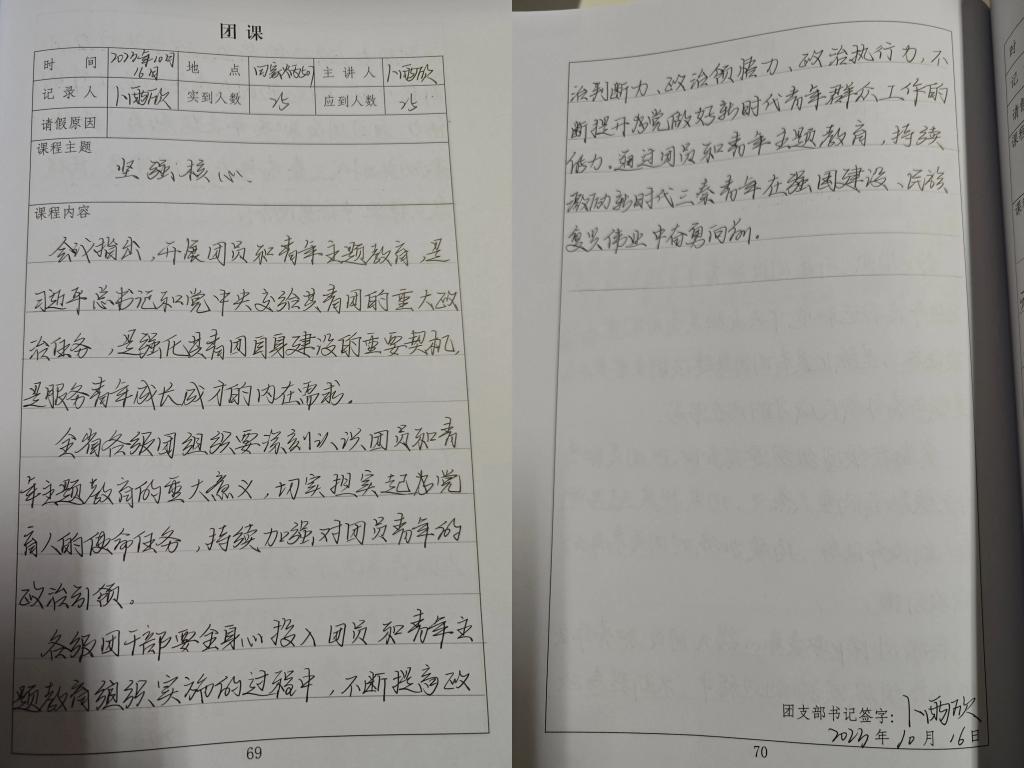 团课
时 间 2023年10月16日 地 点 主讲人 卜雨欣
记录人 卜雨欣 实到人数 25 应到人数 25
请假原因
课程主题
坚强核心.
课程内容
会议指出,开展团员和青年主题教育,是
习近平总书记和党中央交给共青团的重大政
治任务,是强化共青团自身建设的重要契机,
是服务青年成长成才的内在需求.
全省各级团组织要深刻认识团员和青
年主题教育的重大意义,切实担实起为党
育人的使命任务,持续加强对团员青年的
政治引领。
各级团干部要全身心投入团员和青年主
题教育组织实施的过程中,不断提高政
69
治判断力、政治领悟力、政治执行力,不
断提升为党做好新时代青年群众工作的
能力.通过团员和青年主题教育,持续
激励新时代三秦青年在强国建设、民族
复兴伟业中奋勇向前.
团支部书记签字:卜雨欣
2023年10月16日
70